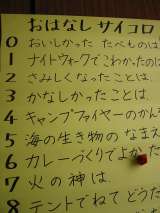 おはなし サイコロ
0 おいしかった たべものは
1 ナイトウォークでこわかったのは
2 さみしくなったことは、
3 かなしかったことは
4 キャンプファイヤーのかん
5 海の生き物の なまえ
6 カレーづくりでよかった
7 火の神は、
8 テントでねて どうだ